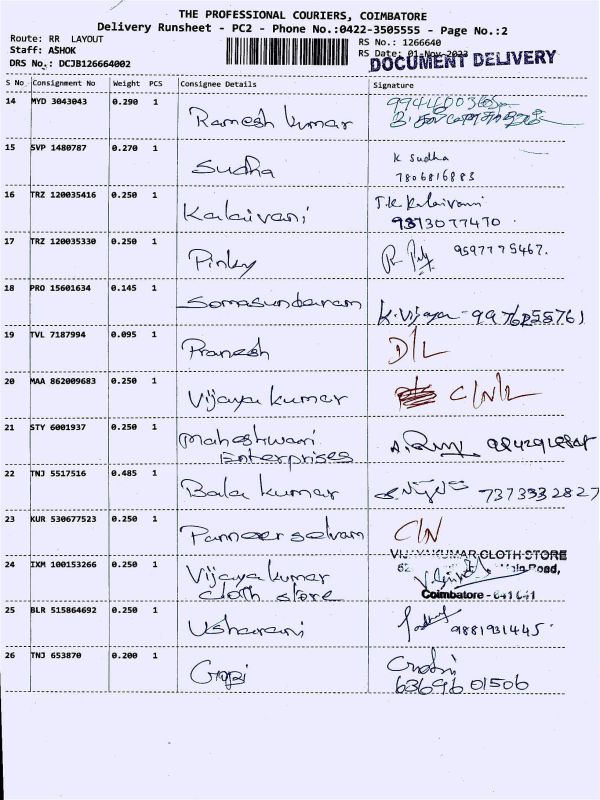 THE PROFESSIONAL COURIERS, COIMBATORE
Delivery Runsheet - PC2 - Phone No.:0422-3505555 - Page No.:2
Route: RR LAYOUT
RS No.: 1266640
Staff: ASHOK
RS Date: 01-Nov-2023
DOCUMENT DELIVERY
DRS No.: DCJB126664002
S No Consignment No Weight PCS Consignee Details Signature
14 MYD 3043043 0.290 1 Ramesh kumar
15 SVP 1480787 0.270 1 Sudha K Sudha
7806816883
16 TRZ 120035416 0.250 1 Kalaivani T.K Kalaivani
9373077470
17 TRZ 120035330 0.250 1 Pinky 9597775467.
18 PRO 15601634 0.145 1 Somasundaram K.Vijaya - 9976255761
19 TVL 7187994 0.095 1 Pranesh D/L
20 MAA 862009683 0.250 1 Vijaya kumar C/N/L
21 STY 6001937 0.250 1 Maheshwari
Enterprises
22 TNJ 5517516 0.485 1 Bala kumar 7373332827
23 KUR 530677523 0.250 1 Panneer selvam C/N
24 IXM 100153266 0.250 1 Vijaya kumar
cloth store
VIJAYAKUMAR CLOTH STORE
Main Road,
Coimbatore - 641 041
25 BLR 515864692 0.250 1 Usharani 9881931445.
26 TNJ 653870 0.200 1 Gopi
63696 01506